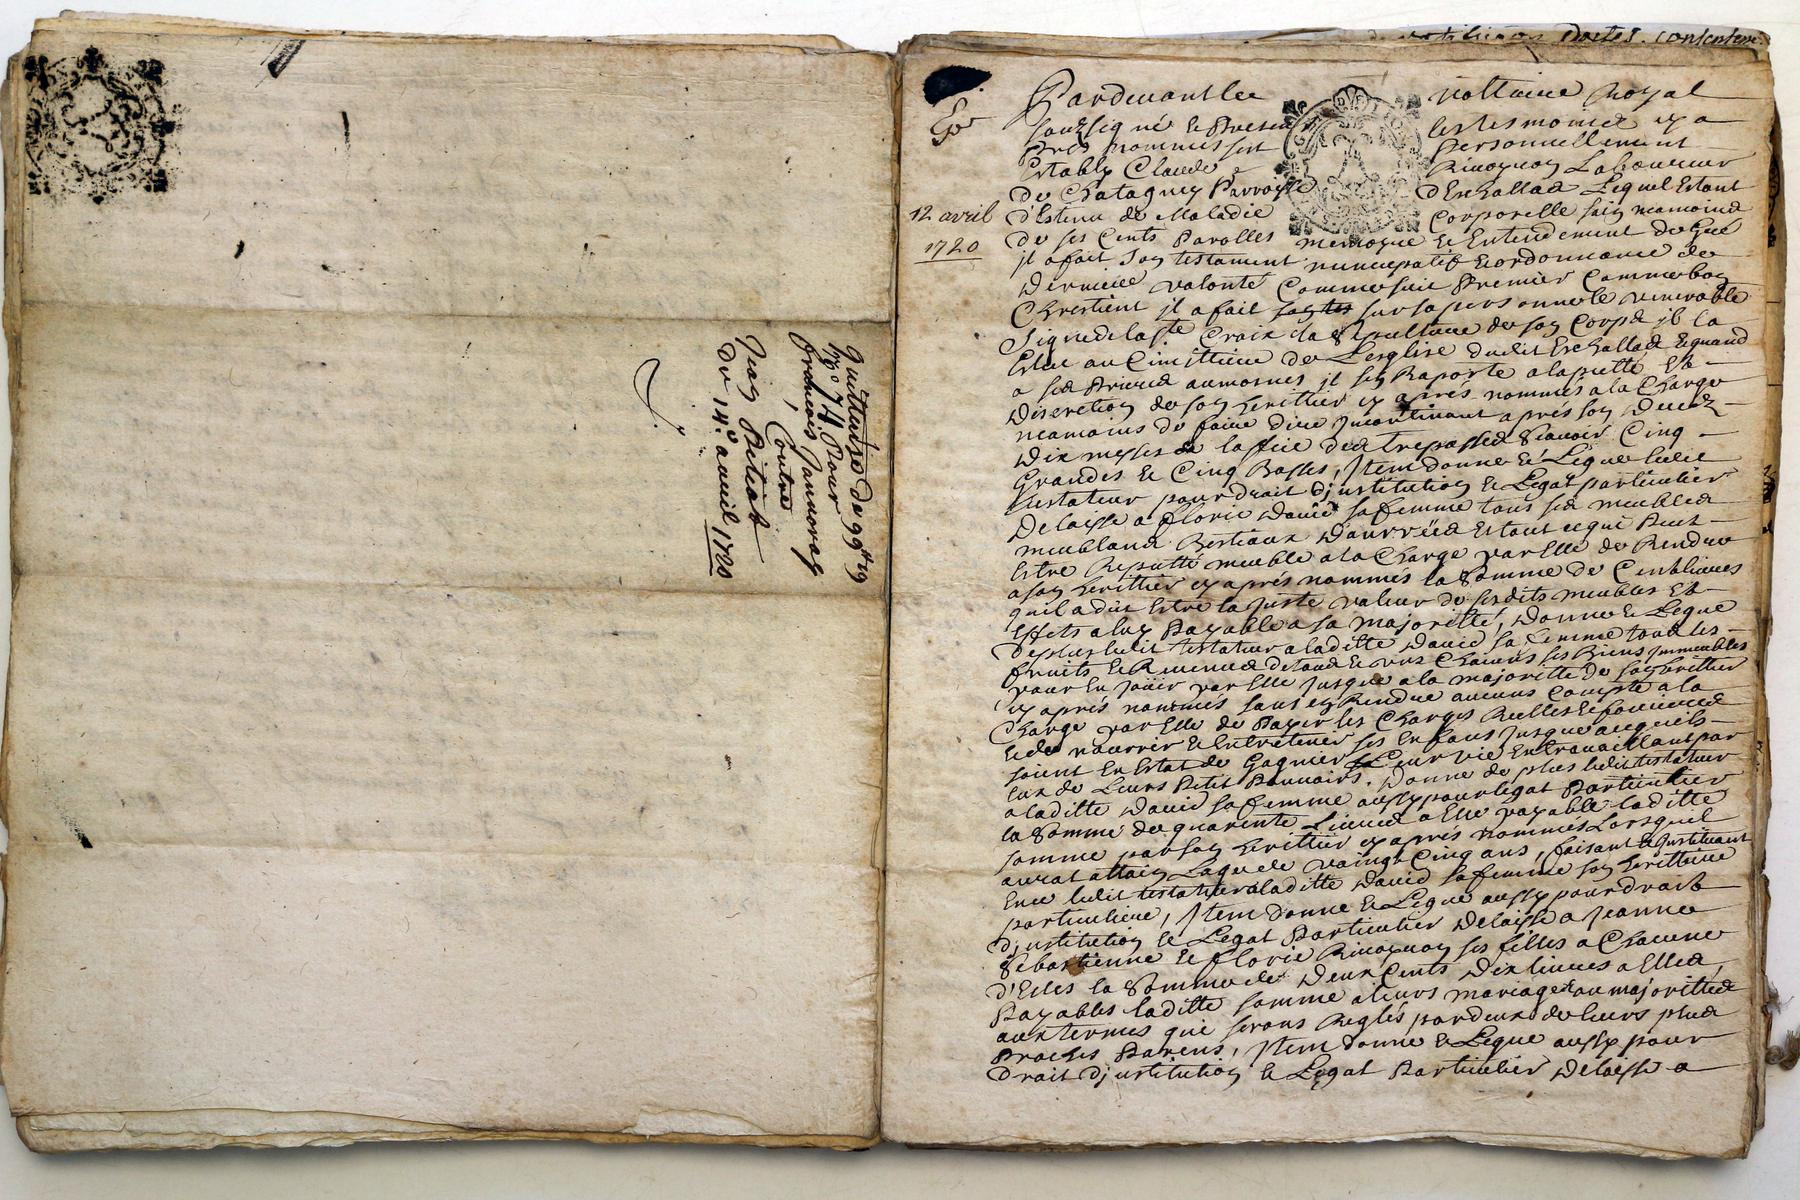 Quittance de 99tt 19
s. 7d. Pour
francois Jannoray
Contre
Jean Petiot
Du 14.e avril 1720
Pardevant le nottaire Royal
soubsigné et Presens les tesmoins cy a
Prés nommés fut personnellement
Estably Claude Laboureur
de Chatagney Parroisse d'Eschallad Lequel Estant
12 avril
1720
d'Estenu de Maladie Corporelle sain neamoind
de ses Cents Parolles memoyre et Entendement de Gré
il a fait son testament nuncupatif et ordonnance de
Derniere volonté Comme suit Premier Comme bon
Chrestient il a fait sur sa personne le venerable
Signe de la ste Croix la Sepulture de son Corps il la
Eslue au Cimittiere de L'esglise dudit Eschallad et quand
a sed Prierea aumosnes il sen Raporte a la pietté Et
Discretion de son herittier cy aprés nommés a la Charge
neamoins de faire dire Incontinant aprés son Decez
Dix messes de l'office ded trepassed scavoir Cinq
Grandes et Cinq Basses, Item donne et Legue ledit
testateur pour droit d'institution et Legat particulier
Delaisse a florie David sa femme tous sed meubled
meubland Bestiaux Danrréed et tout ce qui Peut
Estre Reputté meuble a la Charge par Elle de Rendre
a son herittier cy aprés nommés la Somme de Cent livres
qu'il a dit Estre la juste valeur de sesdits meubles Et
Effets a luy Payable a sa majoritté, Donne et Legue
De plus ledit testateur a laditte David sa femme toud les
fruits et Revenud de toud et vns Chacuns ses Biens Immeubles
pour En joüir par Elle jusque a la majoritte de son herittier
cy aprés nommés sans en Rendre aucuns Compte a la
Charge par Elle de Payer les Charges Reelles et foncieres
et de nourrir et Entretenir ses Enfans jusque a ce quils
soient En Estat de Gagner Leur vie En travaillant par
Eux de Leurs Petit Pouvoirs. Donne de plus ledit testateur
a laditte David sa femme aussy pour legat Particulier
la Somme de quarente Livred a Elle payable laditte
somme par son herittier cy aprés nommés Lorsquil
aurat attain Laque de vaingt Cinq ans, faisant et Instituant
Ence ledit testateur laditte David sa femme son herittiere
particuliere, Item donne et Legue aussy pour droit
d'institution et Legat Particulier Delaisse a Jeanne
Sebastienne et florie ses filles a Chacune
d'Elles la Somme de Deux Cents Dix livres a Elled
Payables laditte somme a leurs mariages ou majorittéd
aux termes qui serons Reglés par deux de leurs plud
Proches Parens, Item donne et Legue aussy pour
Droit d'institution et Legat Particulier Delaisse a